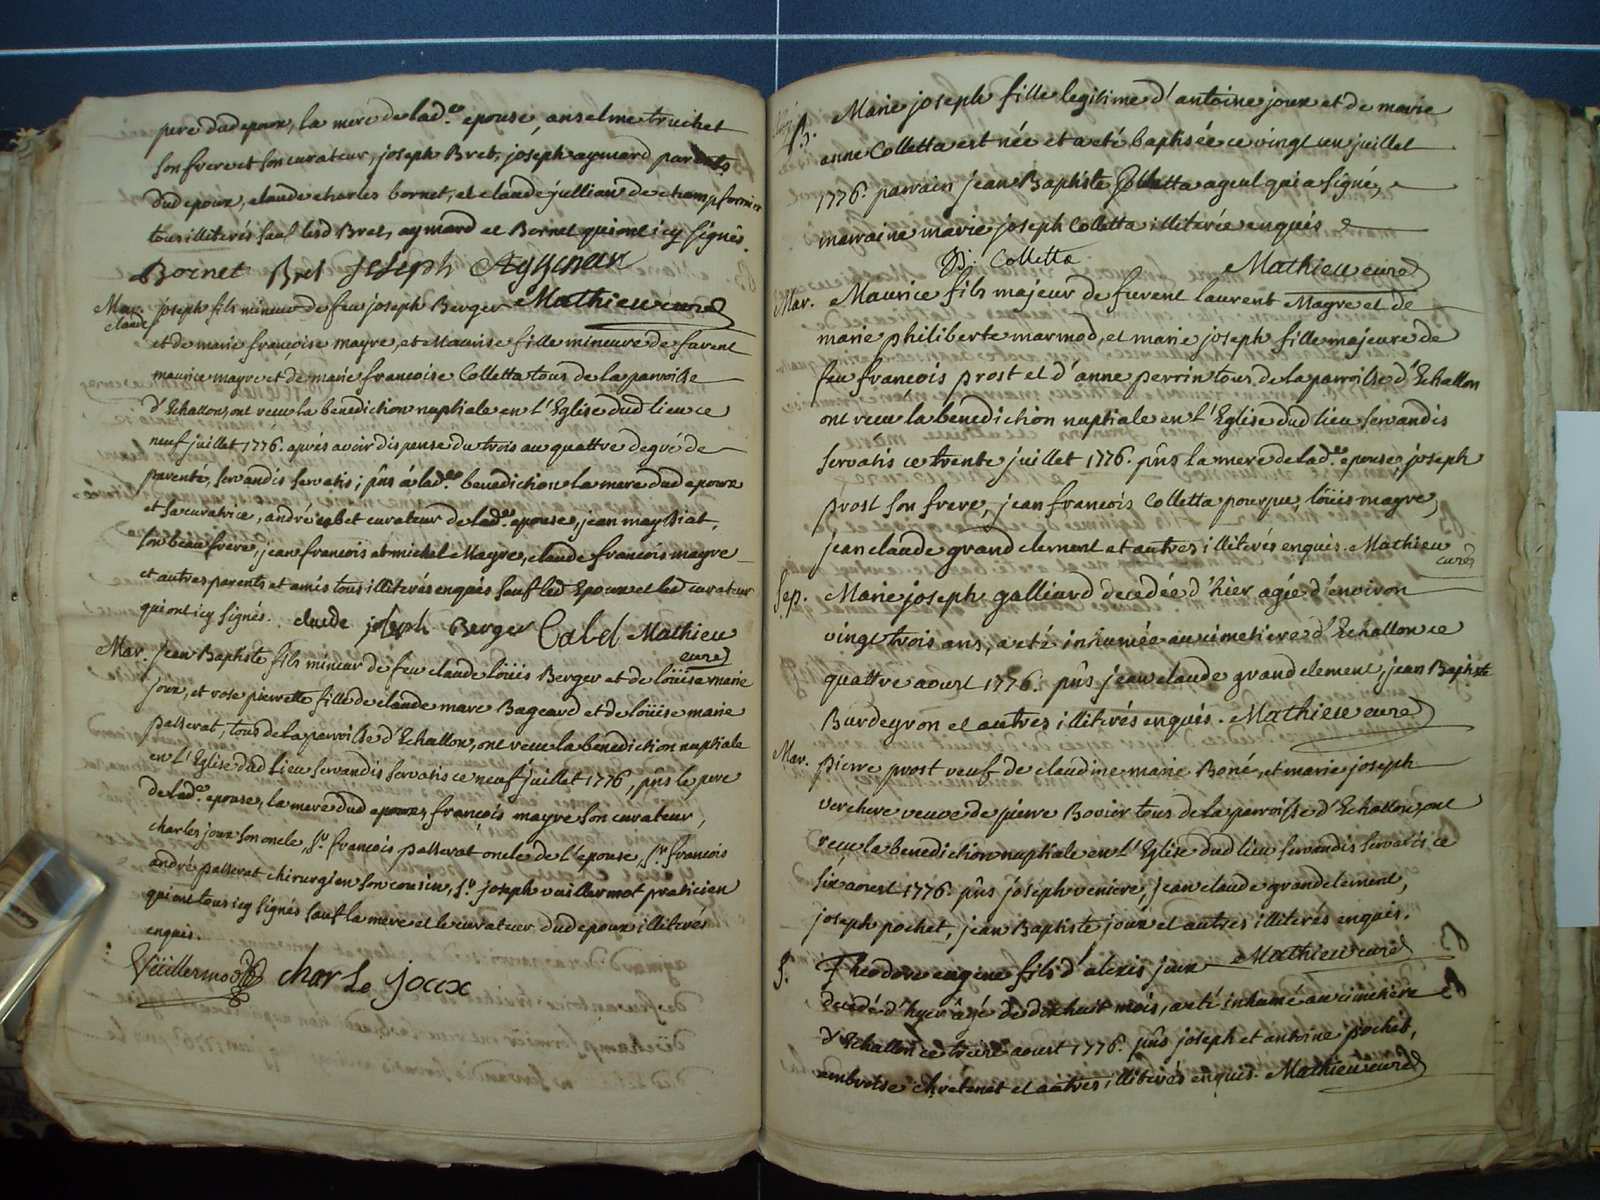 pere dud epoux, la mere de lad.e epouse, anselme truchet
son frere et son curateur, joseph Bret, joseph aymard parents
dud epoux, claude charles bornet, et claude jullian de champformier
tous illiterés sauf lesd Bret, aymard et Bornet qui ont icy signés.
Bornet Bret Joseph
Mathieu curé
Mar. joseph fils mineur de feu joseph Berger
claude
et de marie françoise mayre, et Maurise fille mineure de furent
maurice mayre et de marie francoise Colletta tous de la parroisse
d'Echallon, ont receu la benediction nuptiale en l'Eglise dud lieu ce
neuf juillet 1776. aprés avoir dispense du trois au quattre degré de
parenté, servandis servatis; pñs á lad.e benediction la mere dud epoux
et sa curatrice, andré curateur de lad.e epouse, jean maysiat,
son beau frere, jean françois michel Mayre, claude francois mayre
et autres parents et amis tous illiterés enquis sauf led Epoux et led curateur
qui ont icy signés. claude joseph Berger Mathieu
curé
Mar. jean Baptiste fils mineur de feu claude loüis Berger et de loüise marie
joux, et rose pierrette fille de claude marc Bageard et de loüise marie
passerat, tous de la parroisse d'Echallon, ont receu la benediction nuptiale
en l'Eglise dud lieu servandis servatis ce neuf juillet 1776, pñs le pere
de lad.e epouse, la mere dud epoux, françois mayre son curateur,
charles joux son oncle, s.r françois passerat oncle de l'epouse, s.r francois
andré passerat chirurgien son cousin, s.r joseph vuillermot praticien
qui ont tous icy signés sauf la mere et le curateur dud epoux illiterés
enquis.
Vüillermoz charle joux
B. Marie joseph fille legitime d'antoine joux et de marie
anne Colletta est née et a eté baptisée ce vingt un juillet
1776. parrain jean Baptiste Colletta ayeul qui a signé,
marraine marie joseph Colletta illiterée enquis
Colletta Mathieu curé
Mar. Maurice fils majeur de furent laurent Mayre et de
marie philiberte marmod, et marie joseph fille majeure de
feu francois prost et d'anne perrin tous de la parroisse d'Echallon
ont receu la bénediction nuptiale en l'Eglise dud lieu servandis
servatis ce trente juillet 1776. pñs la mere de lad.e epouse, joseph
prost son frere, jean francois Colletta loüis mayre,
jean claude grandclement et autres illiterés enquis. Mathieu
curé
Sep. Marie joseph galliard decedée d'hier agée d'environ
vingt trois ans, a eté inhumée au cimetiere d'Echallon ce
quattre aoust 1776. pñs jean claude grandclement, jean Baptiste
Burdeyron et autres illiterés enquis. Mathieu curé
Mar. pierre prost veuf de claudine marie Boné, et marie joseph
verchere veuve de pierre Bovier tous de la parroisse d'Echallon, ont
receu la benediction nuptiale en l'Eglise dud lieu servandis servatis ce
six aoust 1776. pñs joseph veniere, jean claude grandclement,
joseph pochet, jean Baptiste joux et autres illiterés enquis.
Mathieu curé
S. Theodore eugene fils d'alexis joux
decedé d'hyer âgé de dixhuit mois, a eté inhumé au cimetiere
d'Echallon ce treize aoust 1776. pñs joseph et antoine pochet,
ambroise chretenet et autres illiterés enquis. Mathieu curé